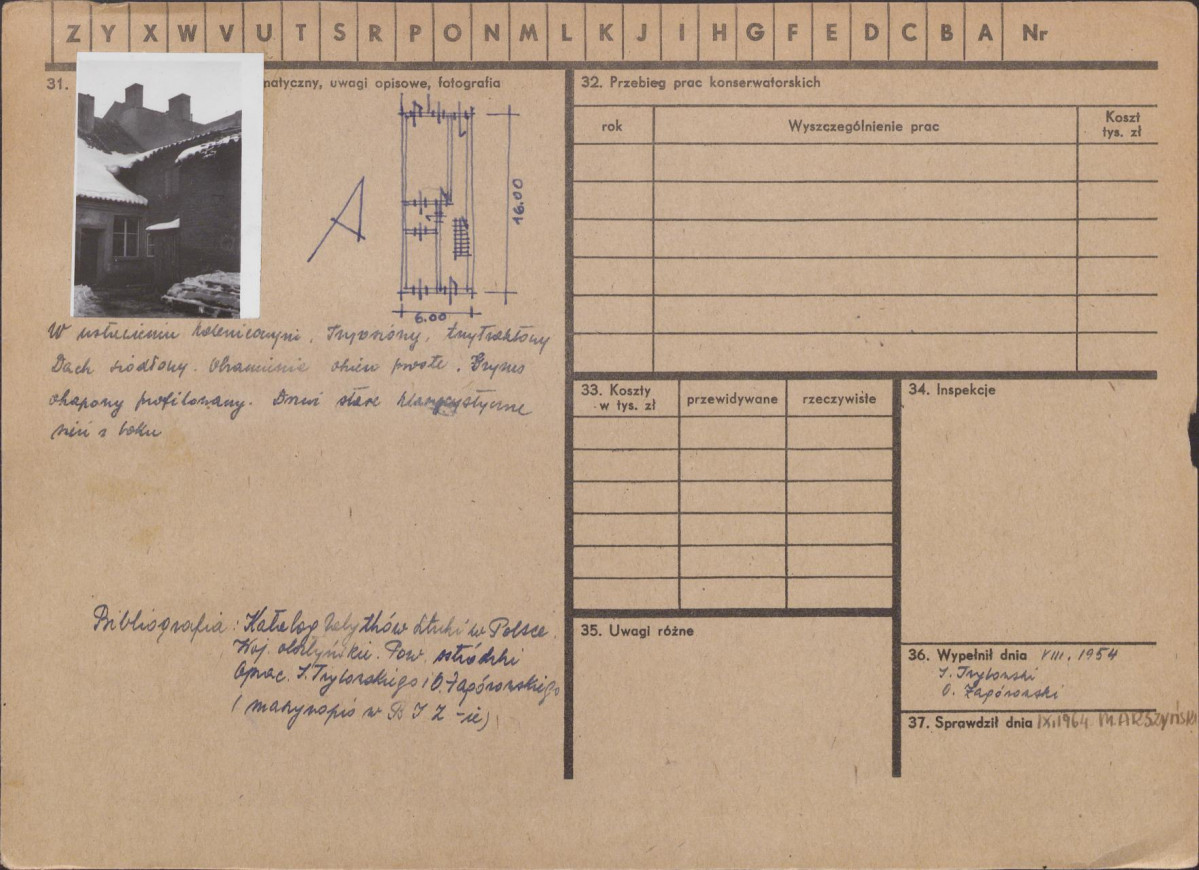 Z Y X W V U T S R P O N M L K J I H G F E D C B A Nr
31.
matyczny, uwagi opisowe, fotografia
16.00
6.00
W ustawieniu kalenicowym. Trzyosiowy, trzytraktowy
Dach siodłowy. Obramienia okien proste. Gzyms
okapowy profilowany. Drzwi stare klasycystyczne
sień z boku
Bibliografia: Katalog Zabytków Sztuki w Polsce.
Woj. olsztyńskie. Pow. ostródzki
Oprac. J. Trzylowskiego i O. Zagórowskiego
(maszynopis w B I Z-ie)
32. Przebieg prac konserwatorskich
rok Wyszczególnienie prac Koszt
tys. zł
33. Koszty
w tys. zł
przewidywane rzeczywiste
34. Inspekcje
35. Uwagi różne
36. Wypełnił dnia VIII. 1954
O. Zagórowski
37. Sprawdził dnia IX.1964 MARSZYŃSKI